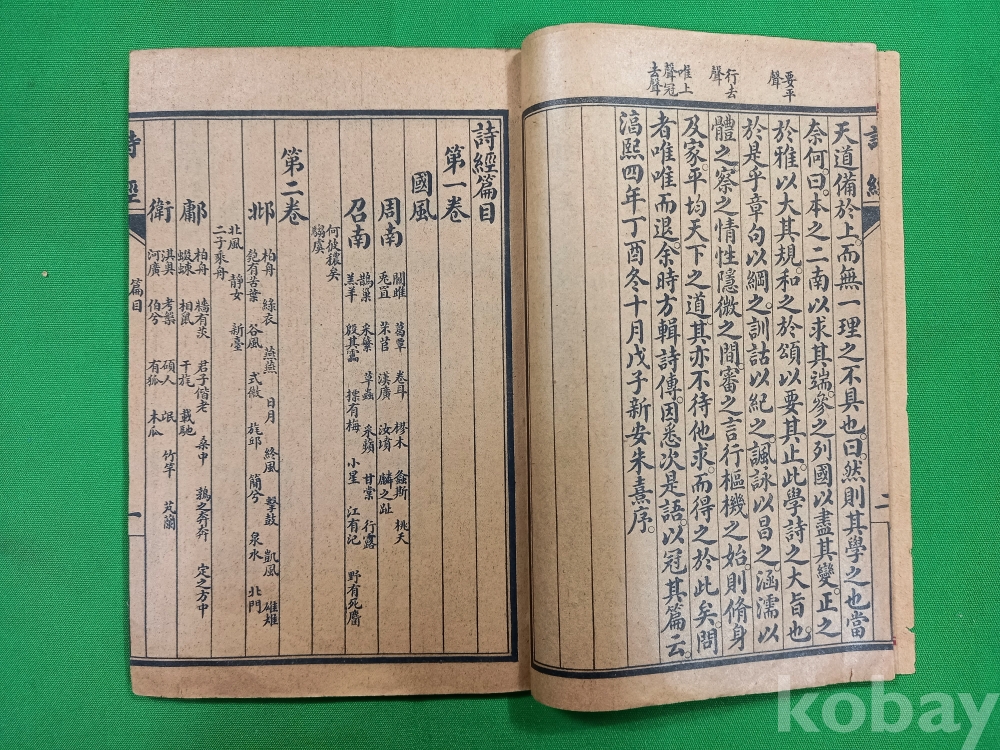 要平
聲
行去
聲
唯上
聲冠
去聲
詩經
天道備於上。而無一理之不具也。曰。然則其學之也當
奈何。曰。本之二南以求其端。參之列國以盡其變。正之
於雅以大其規。和之於頌以要其止。此學詩之大旨也
於是乎章句以綱之。訓詁以紀之。諷詠以昌之。涵濡以
體之。察之情性隱微之間。審之言行樞機之始。則脩身
及家。平均天下之道。其亦不待他求。而得之於此矣。問
者唯唯而退。余時方輯詩傳。因悉次是語。以冠其篇云。
淳熙四年丁酉冬十月戊子新安朱熹序。
二
詩經篇目
第一卷
國風
周南
關雎 葛覃 卷耳 樛木 螽斯 桃夭
兎罝 芣苢 漢廣 汝墳 麟之趾
召南
鵲巢 采蘩 草蟲 采蘋 甘棠 行露
羔羊 殷其靁 摽有梅 小星 江有汜 野有死麕
何彼穠矣
騶虞
第二卷
邶
柏舟 綠衣 燕燕 日月 終風 擊鼓 凱風 雄雉
匏有苦葉 谷風 式微 旄邱 簡兮 泉水 北門
北風 靜女 新臺
二子乘舟
鄘
柏舟 牆有茨 君子偕老 桑中 鶉之奔奔 定之方中
蝃蝀 相鼠 干旄 載馳
衛
淇奧 考槃 碩人 氓 竹竿 芄蘭
河廣 伯兮 有狐 木瓜
詩經
篇目
一
kobay